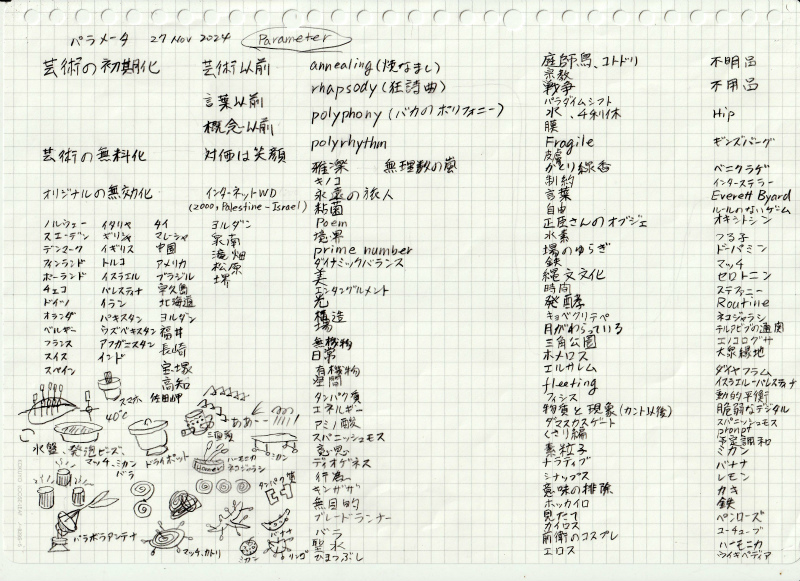 パラメータ 27 Nov 2024 Parameter
芸術の初期化
芸術の無料化
オリジナルの無効化
芸術以前
言葉以前
概念以前
対価は笑顔
インターネットWD
(2000, Palestine-Israel)
ノルウェー
スエーデン
デンマーク
フィンランド
ポーランド
チェコ
ドイツ
オランダ
ベルギー
フランス
スイス
スペイン
イタリヤ
ギリシャ
イギリス
トルコ
イスラエル
パレスティナ
イラン
パキスタン
ウズベキスタン
アフガニスタン
インド
タイ
マレーシャ
中国
アメリカ
ブラジル
屋久島
北海道
ヨルダン
福井
長崎
宝塚
高知
佐田岬
ヨルダン
泉南
滝畑
松原
堺
annealing(焼なまし)
rhapsody(狂詩曲)
polyphony(バカのポリフォニー)
polyrhythm
雅楽 無理数の嵐
キノコ
永遠の旅人
粘菌
Poem
境界
prime number
ダイナミックバランス
美
エンタングルメント
光
構造
場
無機物
日常
有機物
空間
タンパク質
エネルギー
アミノ酸
スパニッシュモス
意思
ディオゲネス
行為
キンザザ
無目的
ブレードランナー
バラ
聖水
ひまつぶし
庭師鳥、コトドリ
宗教
戦争
パラダイムシフト
水、4利休
膜
Fragile
皮膚
かとり線香
制約
言葉
自由
正座さんのオブジェ
水素
場のゆらぎ
鉄
縄文文化
時間
発酵
キョベクリテペ
月がわらっている
三角公園
ホメロス
エルサレム
fleeting
フィシス
物質と現象(カント以後)
ダマスクスゲート
くさり編
素粒子
ナラティブ
シナップス
意味の排除
ホッカイロ
見たて
カイロス
前衛のコスプレ
エロス
不明呂
不用呂
Hip
ギンズバーグ
ベニクラゲ
インターステラー
Everett Byard
ルールのないゲーム
オキシトシン
つる子
ドーパミン
マッチ
セロトニン
ステファニー
Routine
ネコジャラシ
テルアビブの通園
エノコログサ
大泉緑地
ダイヤフラム
イスラエル-パレスティナ
動的平衡
脆弱なデジタル
スパニシュモス
prompt
予定調和
ミカン
バナナ
レモン
カキ
鉄
ペンローズ
ユーチューブ
ハーモニカ
ウイキペディア
スマホ
40℃
水盤、発泡ビーズ、
マッチ、ミカン
バラ
ドライポット
三面鏡
ああ〜
Homer
ハーモニカ
ネコジャラシ
ミカン
タンパク質
パラボラアンテナ
マッチ、カトリ
ミカン
バナナ
リンゴ